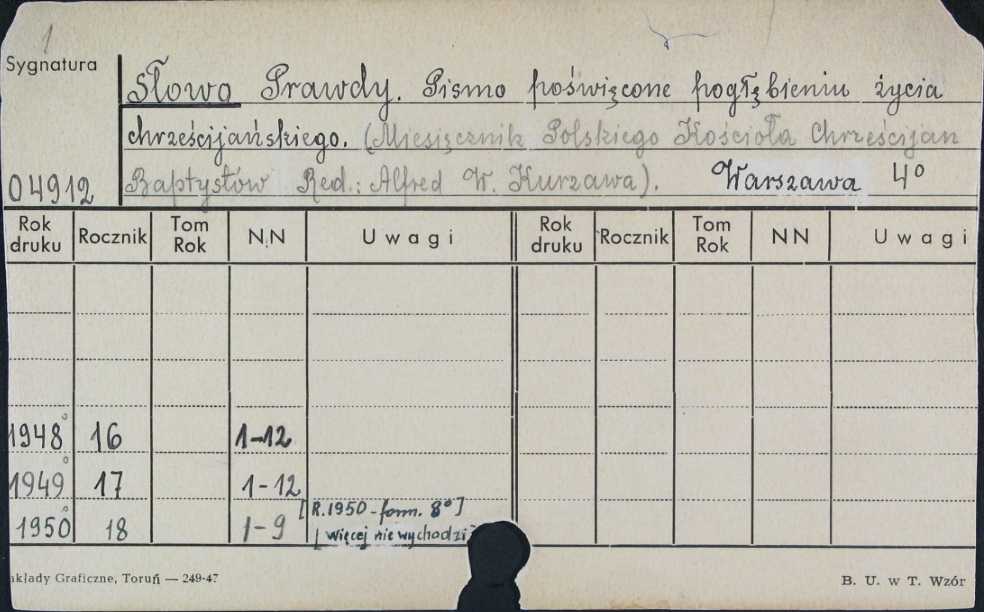 1
Sygnatura
Słowo Prawdy. Pismo poświęcone pogłębieniu życia
chrześcijańskiego. (Miesięcznik Polskiego Kościoła Chrześcijan
04912 Baptystów Red.: Alfred W. Kurzawa). Warszawa 4°
Rok druku Rocznik Tom Rok N.N Uwagi Rok druku Rocznik Tom Rok NN Uwagi
1948° 16 1-12
1949° 17 1-12
[R.1950 - form. 8°]
1950° 18 1-9 [więcej nie wychodzi
akłady Graficzne, Toruń — 249-47 B. U. w T. Wzór